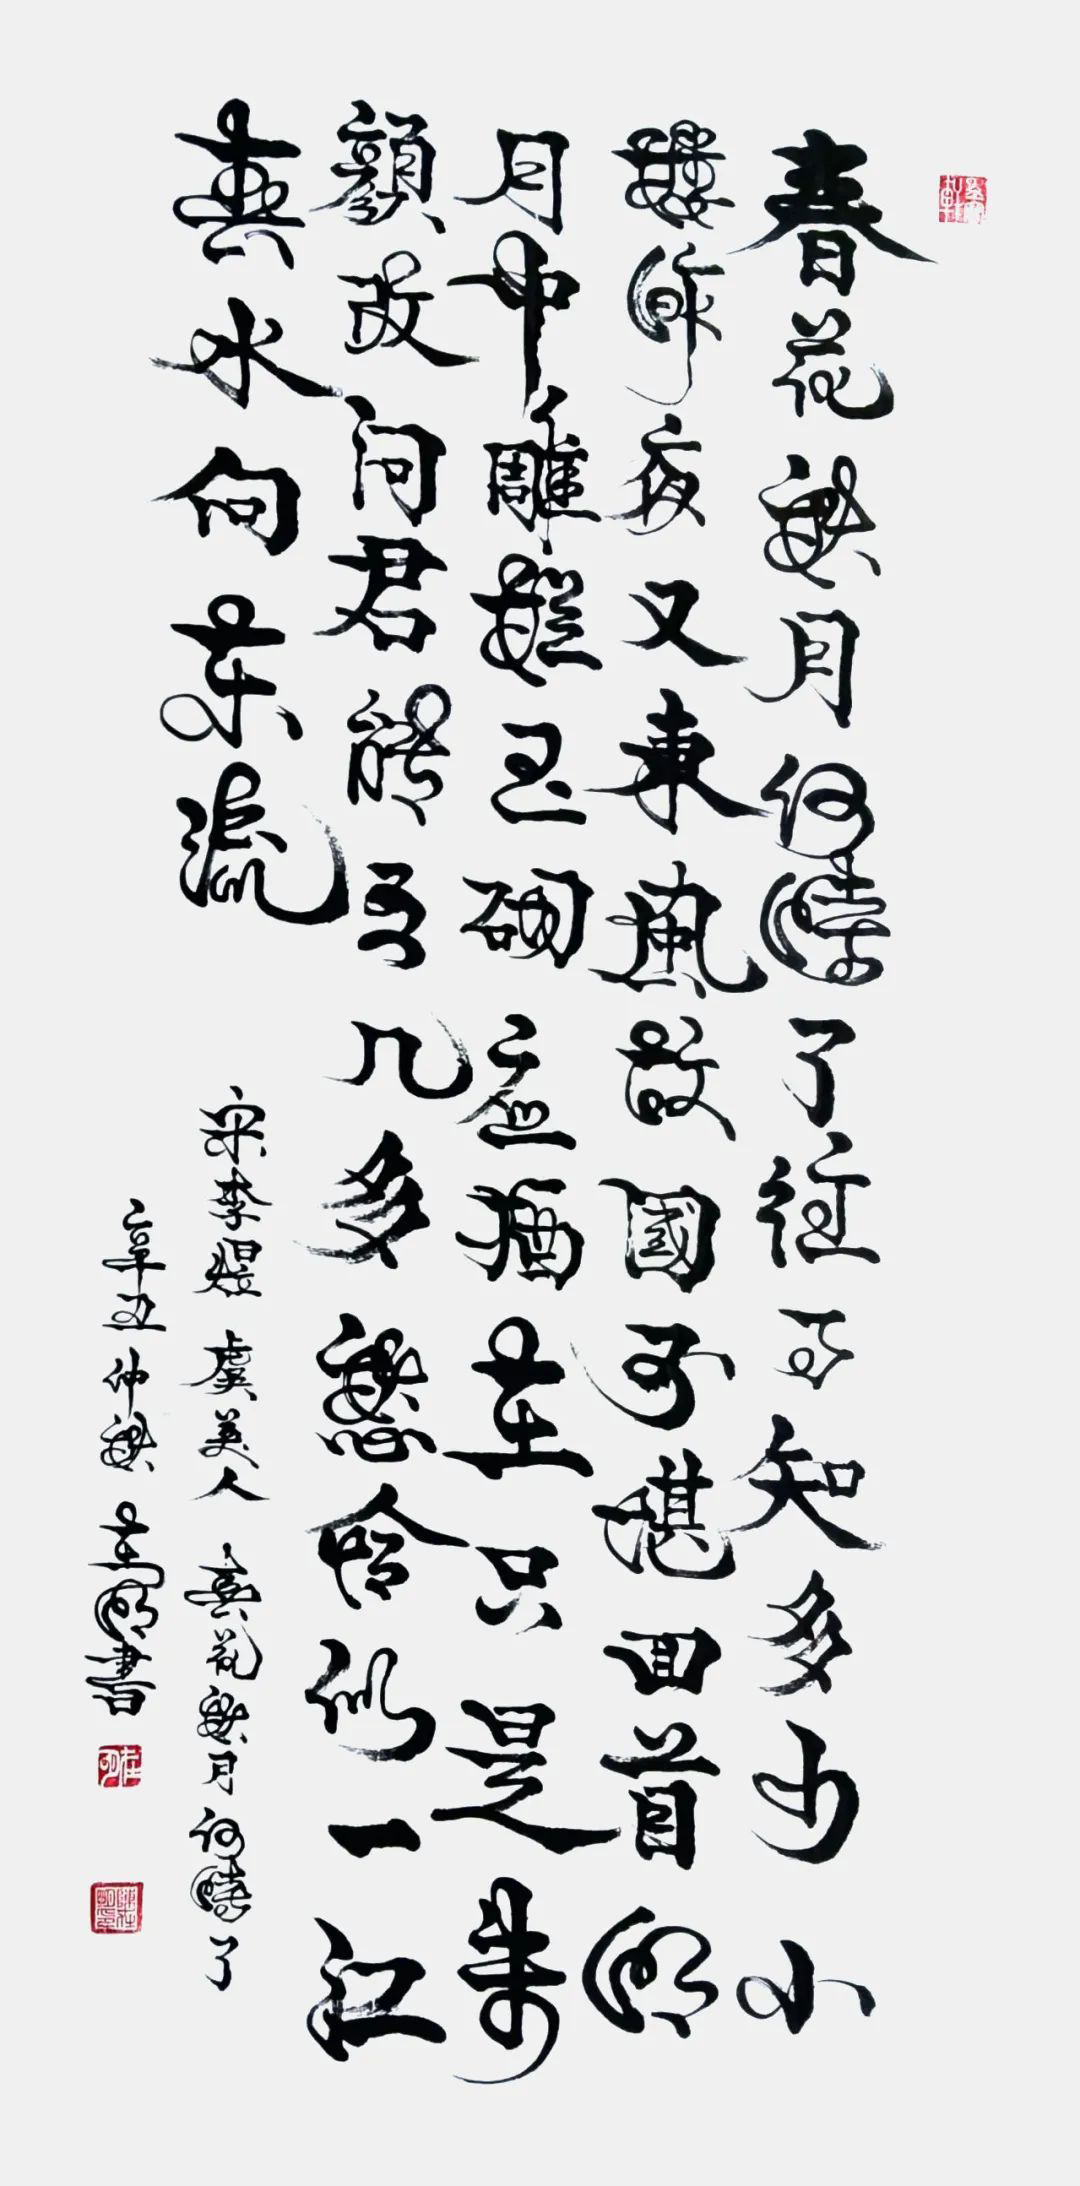 春花秋月何時了往事知多少小
樓昨夜又東風故國不堪回首明
月中雕欄玉砌應猶在只是朱
顏改問君能有几多愁恰似一江
春水向東流
宋李煜 虞美人 春花秋月何時了
辛丑仲秋 在明書